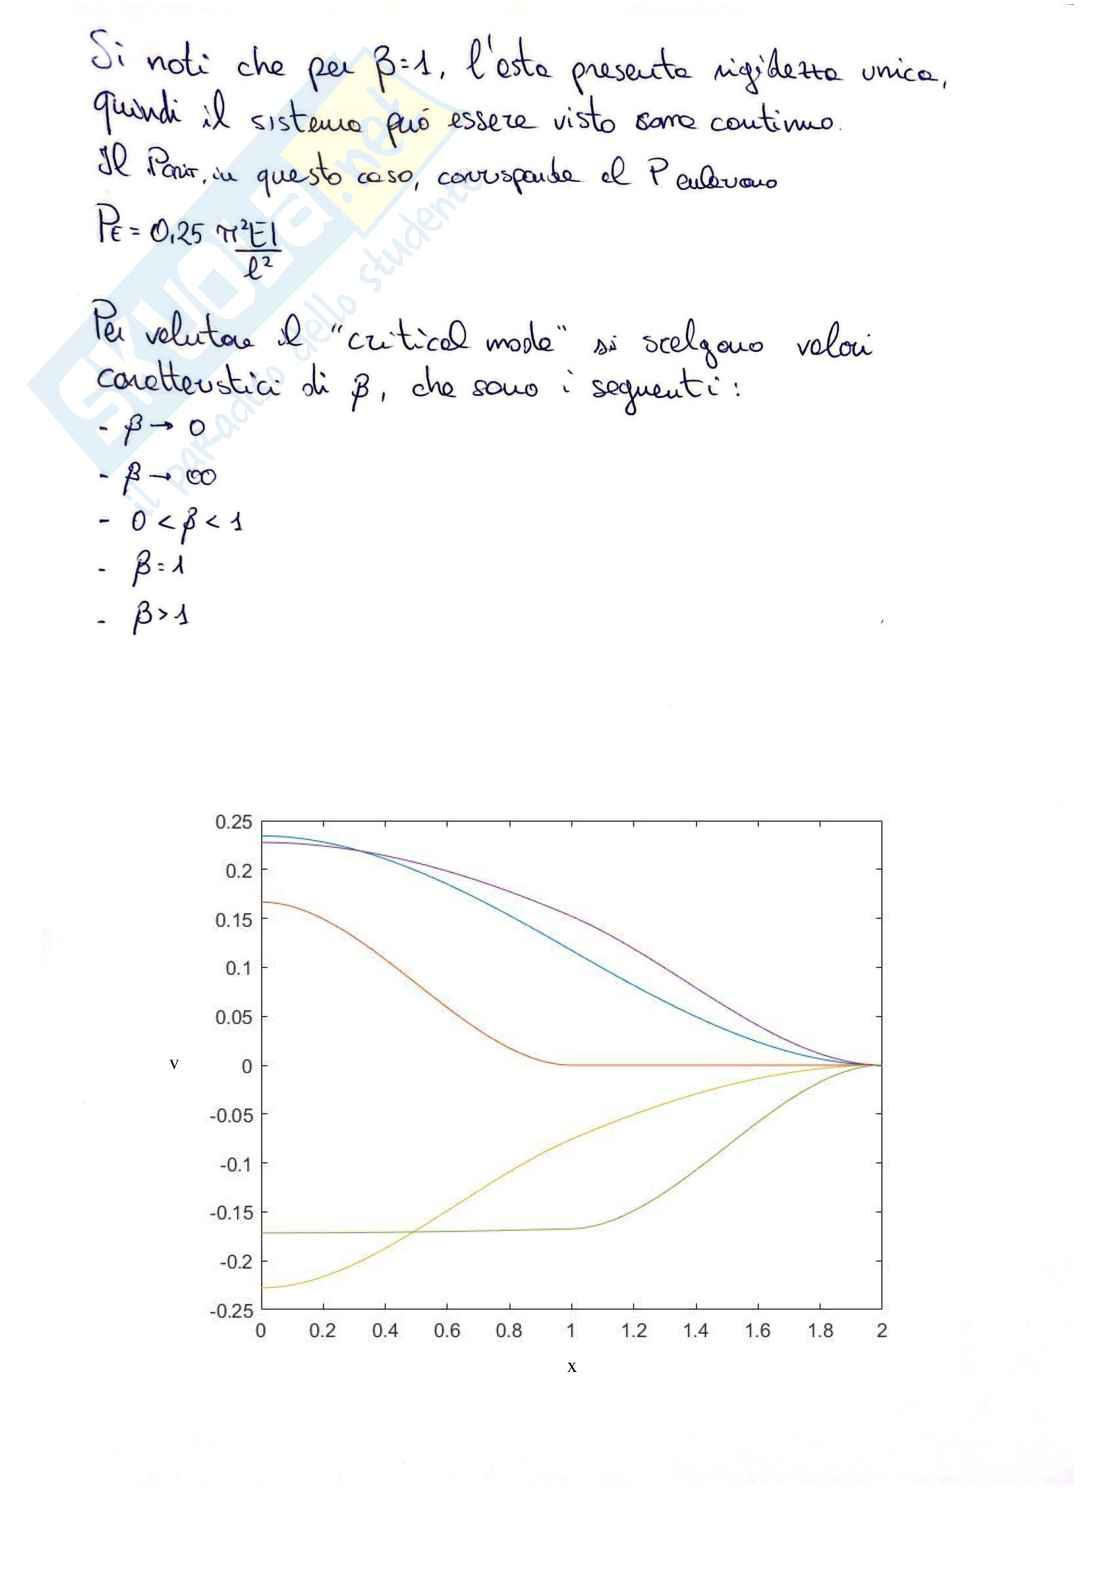 Si noti che per β=1, l'asta presenta rigidezza unica,
quindi il sistema può essere visto come continuo.
Il Pcrit, in questo caso, corrisponde al P euleriano
PE = 0,25 π²EI / l²
Per valutare il "critical mode" si scelgono valori
caratteristici di β, che sono i seguenti:
- β → 0
- β → ∞
- 0 < β < 1
- β = 1
- β > 1
SKUOLA.net
il paradiso dello studente
0.25
0.2
0.15
0.1
0.05
0
-0.05
-0.1
-0.15
-0.2
-0.25
v
0 0.2 0.4 0.6 0.8 1 1.2 1.4 1.6 1.8 2
x